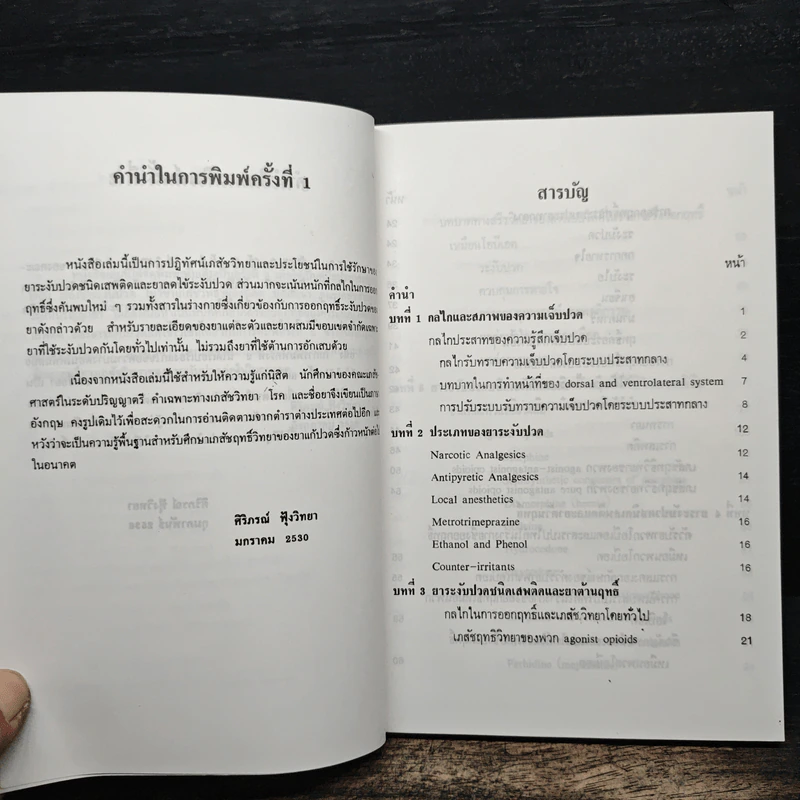 คำนำในการพิมพ์ครั้งที่ 1
หนังสือเล่มนี้เป็นการปฏิทัศน์เภสัชวิทยาและประโยชน์ในการใช้รักษาของ
ยาระงับปวดชนิดเสพติดและยาลดไข้ระงับปวด ส่วนมากจะเน้นหนักที่กลไกการออก
ฤทธิ์ซึ่งค้นพบใหม่ ๆ รวมทั้งสารในร่างกายซึ่งเกี่ยวข้องกับการออกฤทธิ์ระงับปวดของ
ยาดังกล่าวด้วย สำหรับรายละเอียดของยาแต่ละตัวและยาผสมมีขอบเขตจำกัดเฉพาะ
ยาที่ใช้ระงับปวดกันโดยทั่วไปเท่านั้น ไม่รวมถึงยาที่ใช้ต้านการอักเสบด้วย
เนื่องจากหนังสือเล่มนี้ใช้สำหรับให้ความรู้แก่นิสิต นักศึกษาของคณะเภสัช
ศาสตร์ในระดับปริญญาตรี คำเฉพาะทางเภสัชวิทยา โรค และชื่อยาจึงเขียนเป็นภาษา
อังกฤษ คงรูปเดิมไว้เพื่อสะดวกในการอ่านติดตามจากตำราต่างประเทศต่อไปอีก และ
หวังว่าจะเป็นความรู้พื้นฐานสำหรับศึกษาเภสัชฤทธิ์วิทยาของยาแก้ปวดซึ่งก้าวหน้าต่อไป
ในอนาคต
ศิริภรณ์ ฟุ้งวิทยา
มกราคม 2530
สารบัญ
หน้า
คำนำ
บทที่ 1 กลไกและสภาพของความเจ็บปวด 1
กลไกประสาทของความรู้สึกเจ็บปวด 2
กลไกรับทราบความเจ็บปวดโดยระบบประสาทกลาง 4
บทบาทในการทำหน้าที่ของ dorsal and ventrolateral system 7
การปรับระบบรับทราบความเจ็บปวดโดยระบบประสาทกลาง 8
บทที่ 2 ประเภทของยาระงับปวด 12
Narcotic Analgesics 12
Antipyretic Analgesics 14
Local anesthetics 14
Metrotrimeprazine 16
Ethanol and Phenol 16
Counter-irritants 16
บทที่ 3 ยาระงับปวดชนิดเสพติดและยาต้านฤทธิ์
กลไกในการออกฤทธิ์และเภสัชวิทยาโดยทั่วไป 18
เภสัชฤทธิ์วิทยาของพวก agonist opioids 21